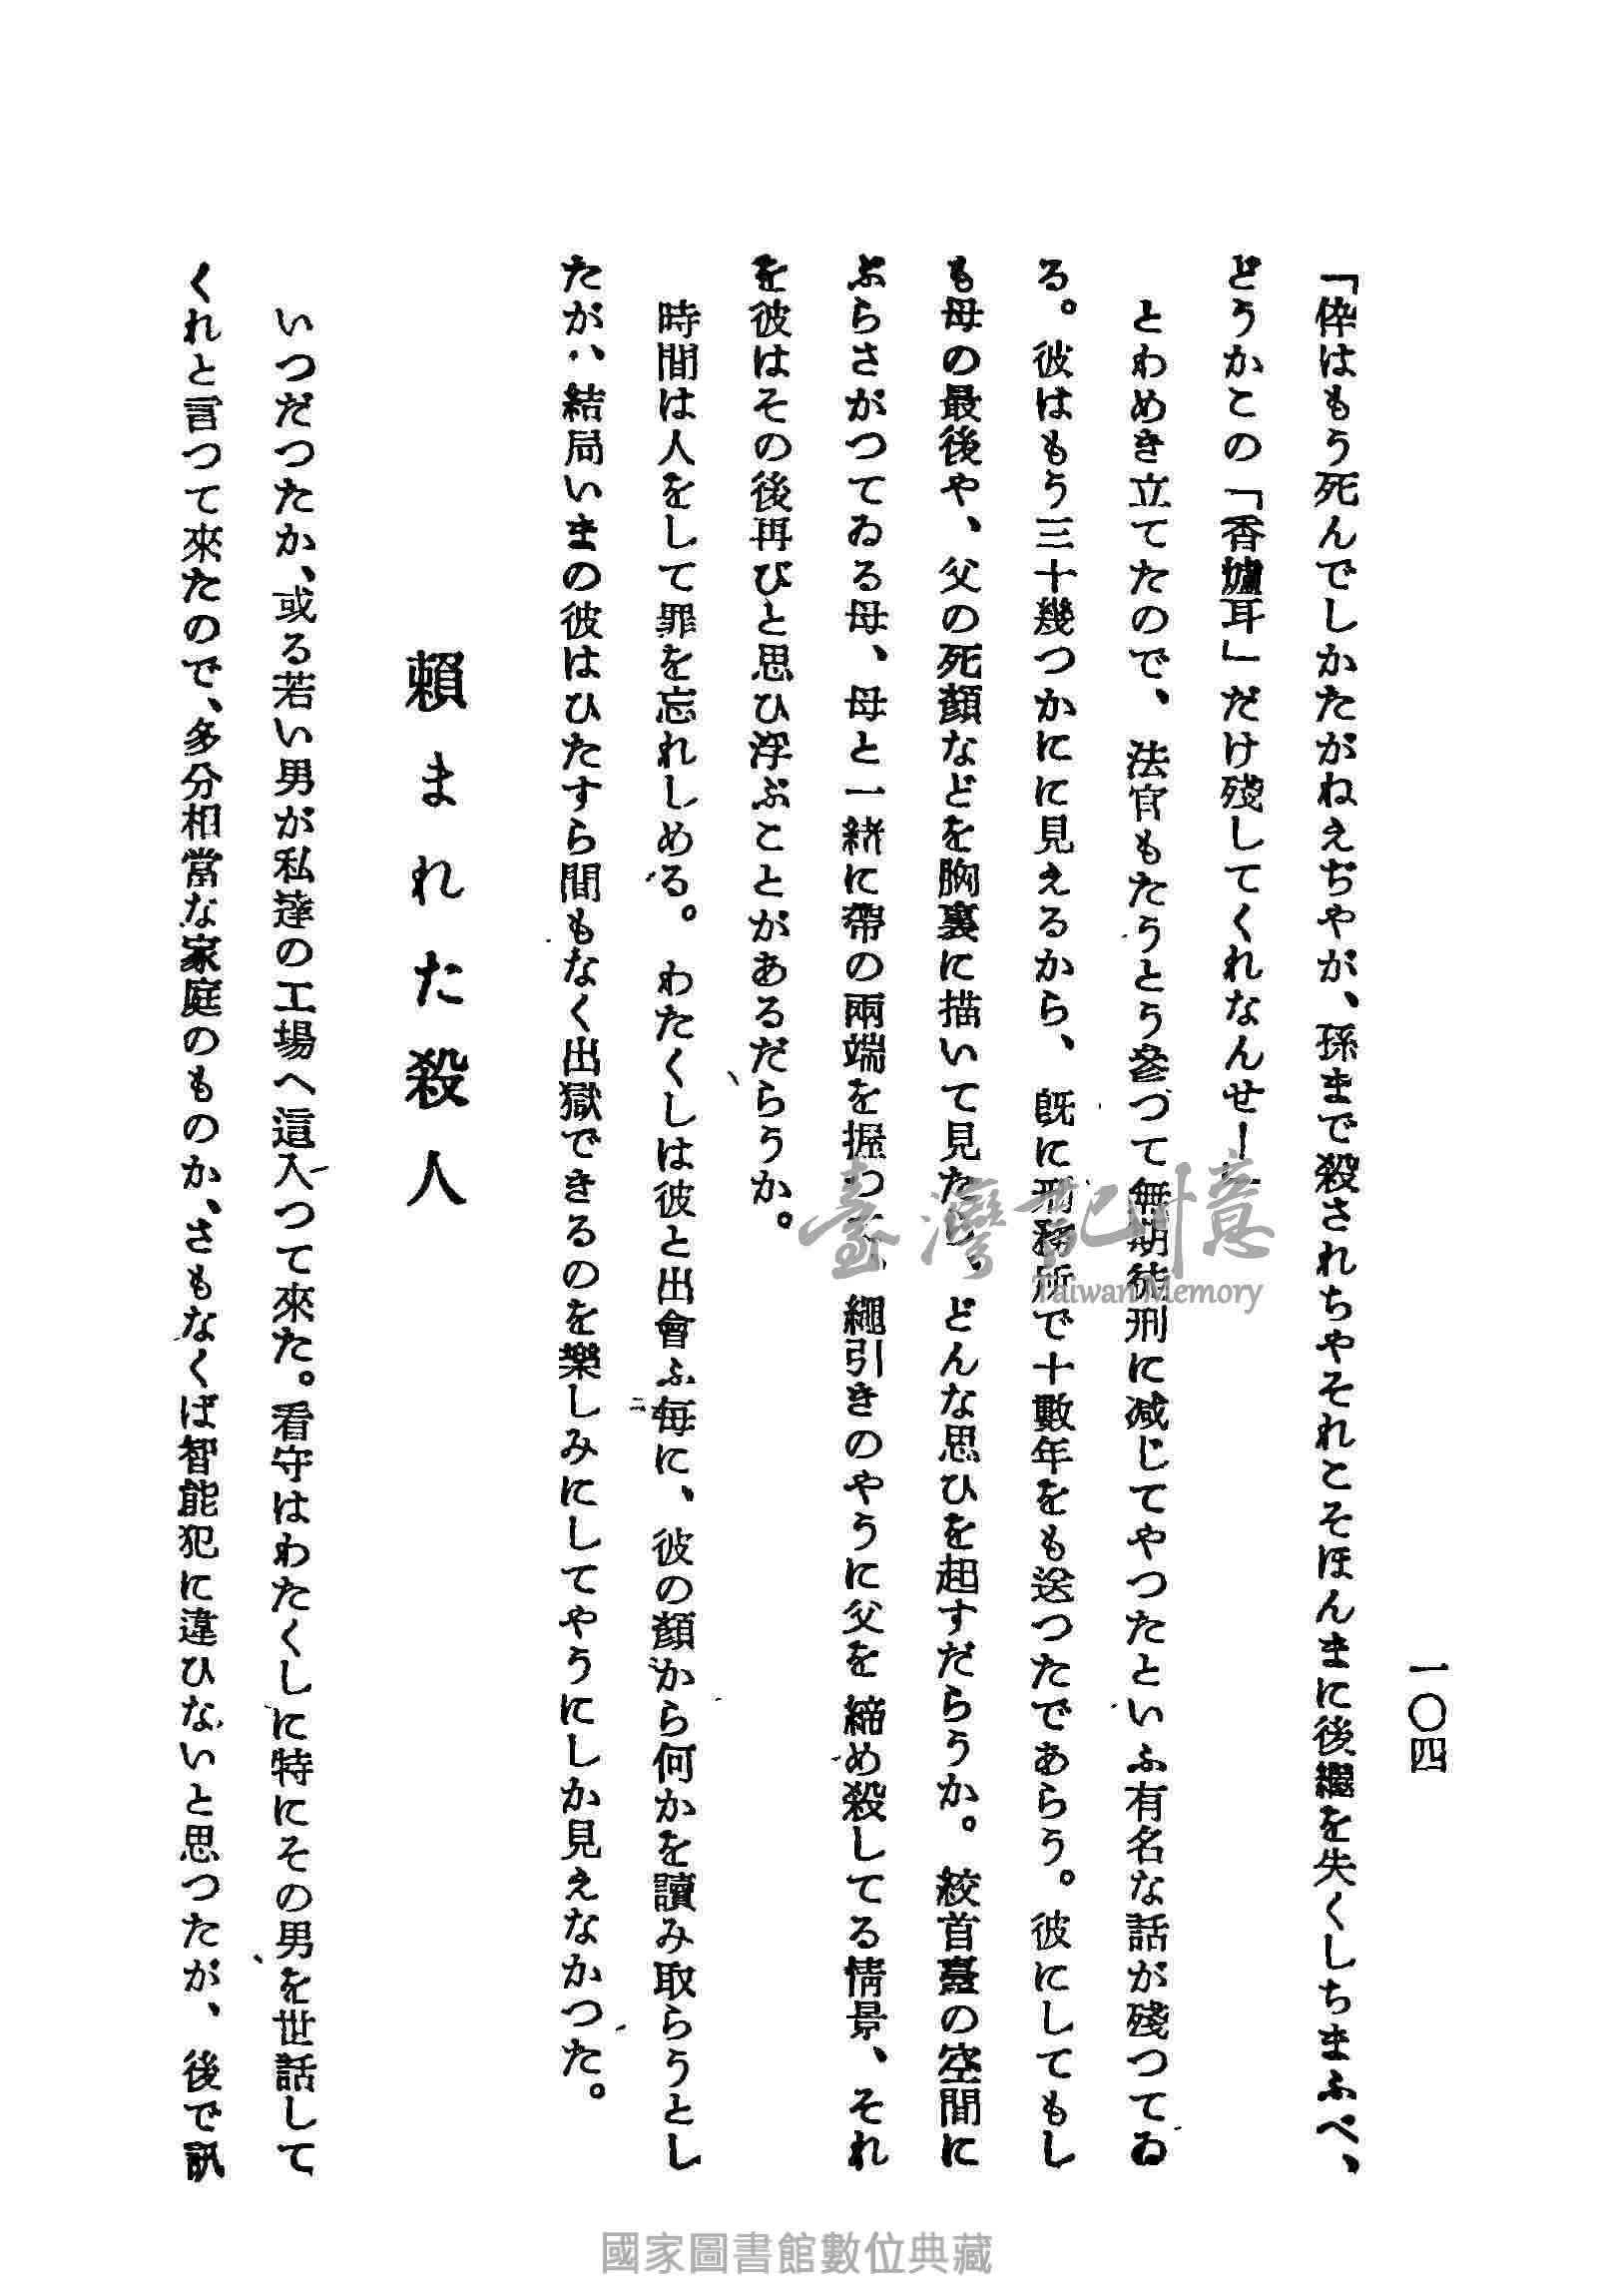 一〇四
「倅はもう死んでしかたがねえぢやが、孫まで殺されちやそれこそほんまに後繼を失くしちまふべ、
どうかこの「香爐耳」だけ殘してくれなんせ！」
とわめき立てたので、法官もたうとう參づて無期徒刑に減じてやつたといふ有名な話が殘つてゐ
る。彼はもう三十幾つかにに見えるから、既に刑務所で十數年をも送つたであらう。彼にしてもし
も母の最後や、父の死顏などを胸裏に描いて見たら、どんな思ひを起すだらうか。絞首臺の空間に
ぶらさがつてゐる母、母と一緒に帶の兩端を握つて、繩引きのやうに父を締め殺してる情景、それ
を彼はその後再びと思ひ浮ぶことがあるだらうか。
時間は人をして罪を忘れしめる。わたくしは彼と出會ふ每に、彼の顏から何かを讀み取らうとし
たが、結局いまの彼はひたすら間もなく出獄できるのを樂しみにしてやうにしか見えなかつた。
賴まれた殺人
いつだつたか、或る若い男が私達の工場へ這入つて來た。看守はわたくしに特にその男を世話して
くれと言つて來たので、多分相當な家庭のものか、さもなくば智能犯に違ひないと思つたが、後で訊
臺灣記憶
Taiwan Memory
國家圖書館數位典藏